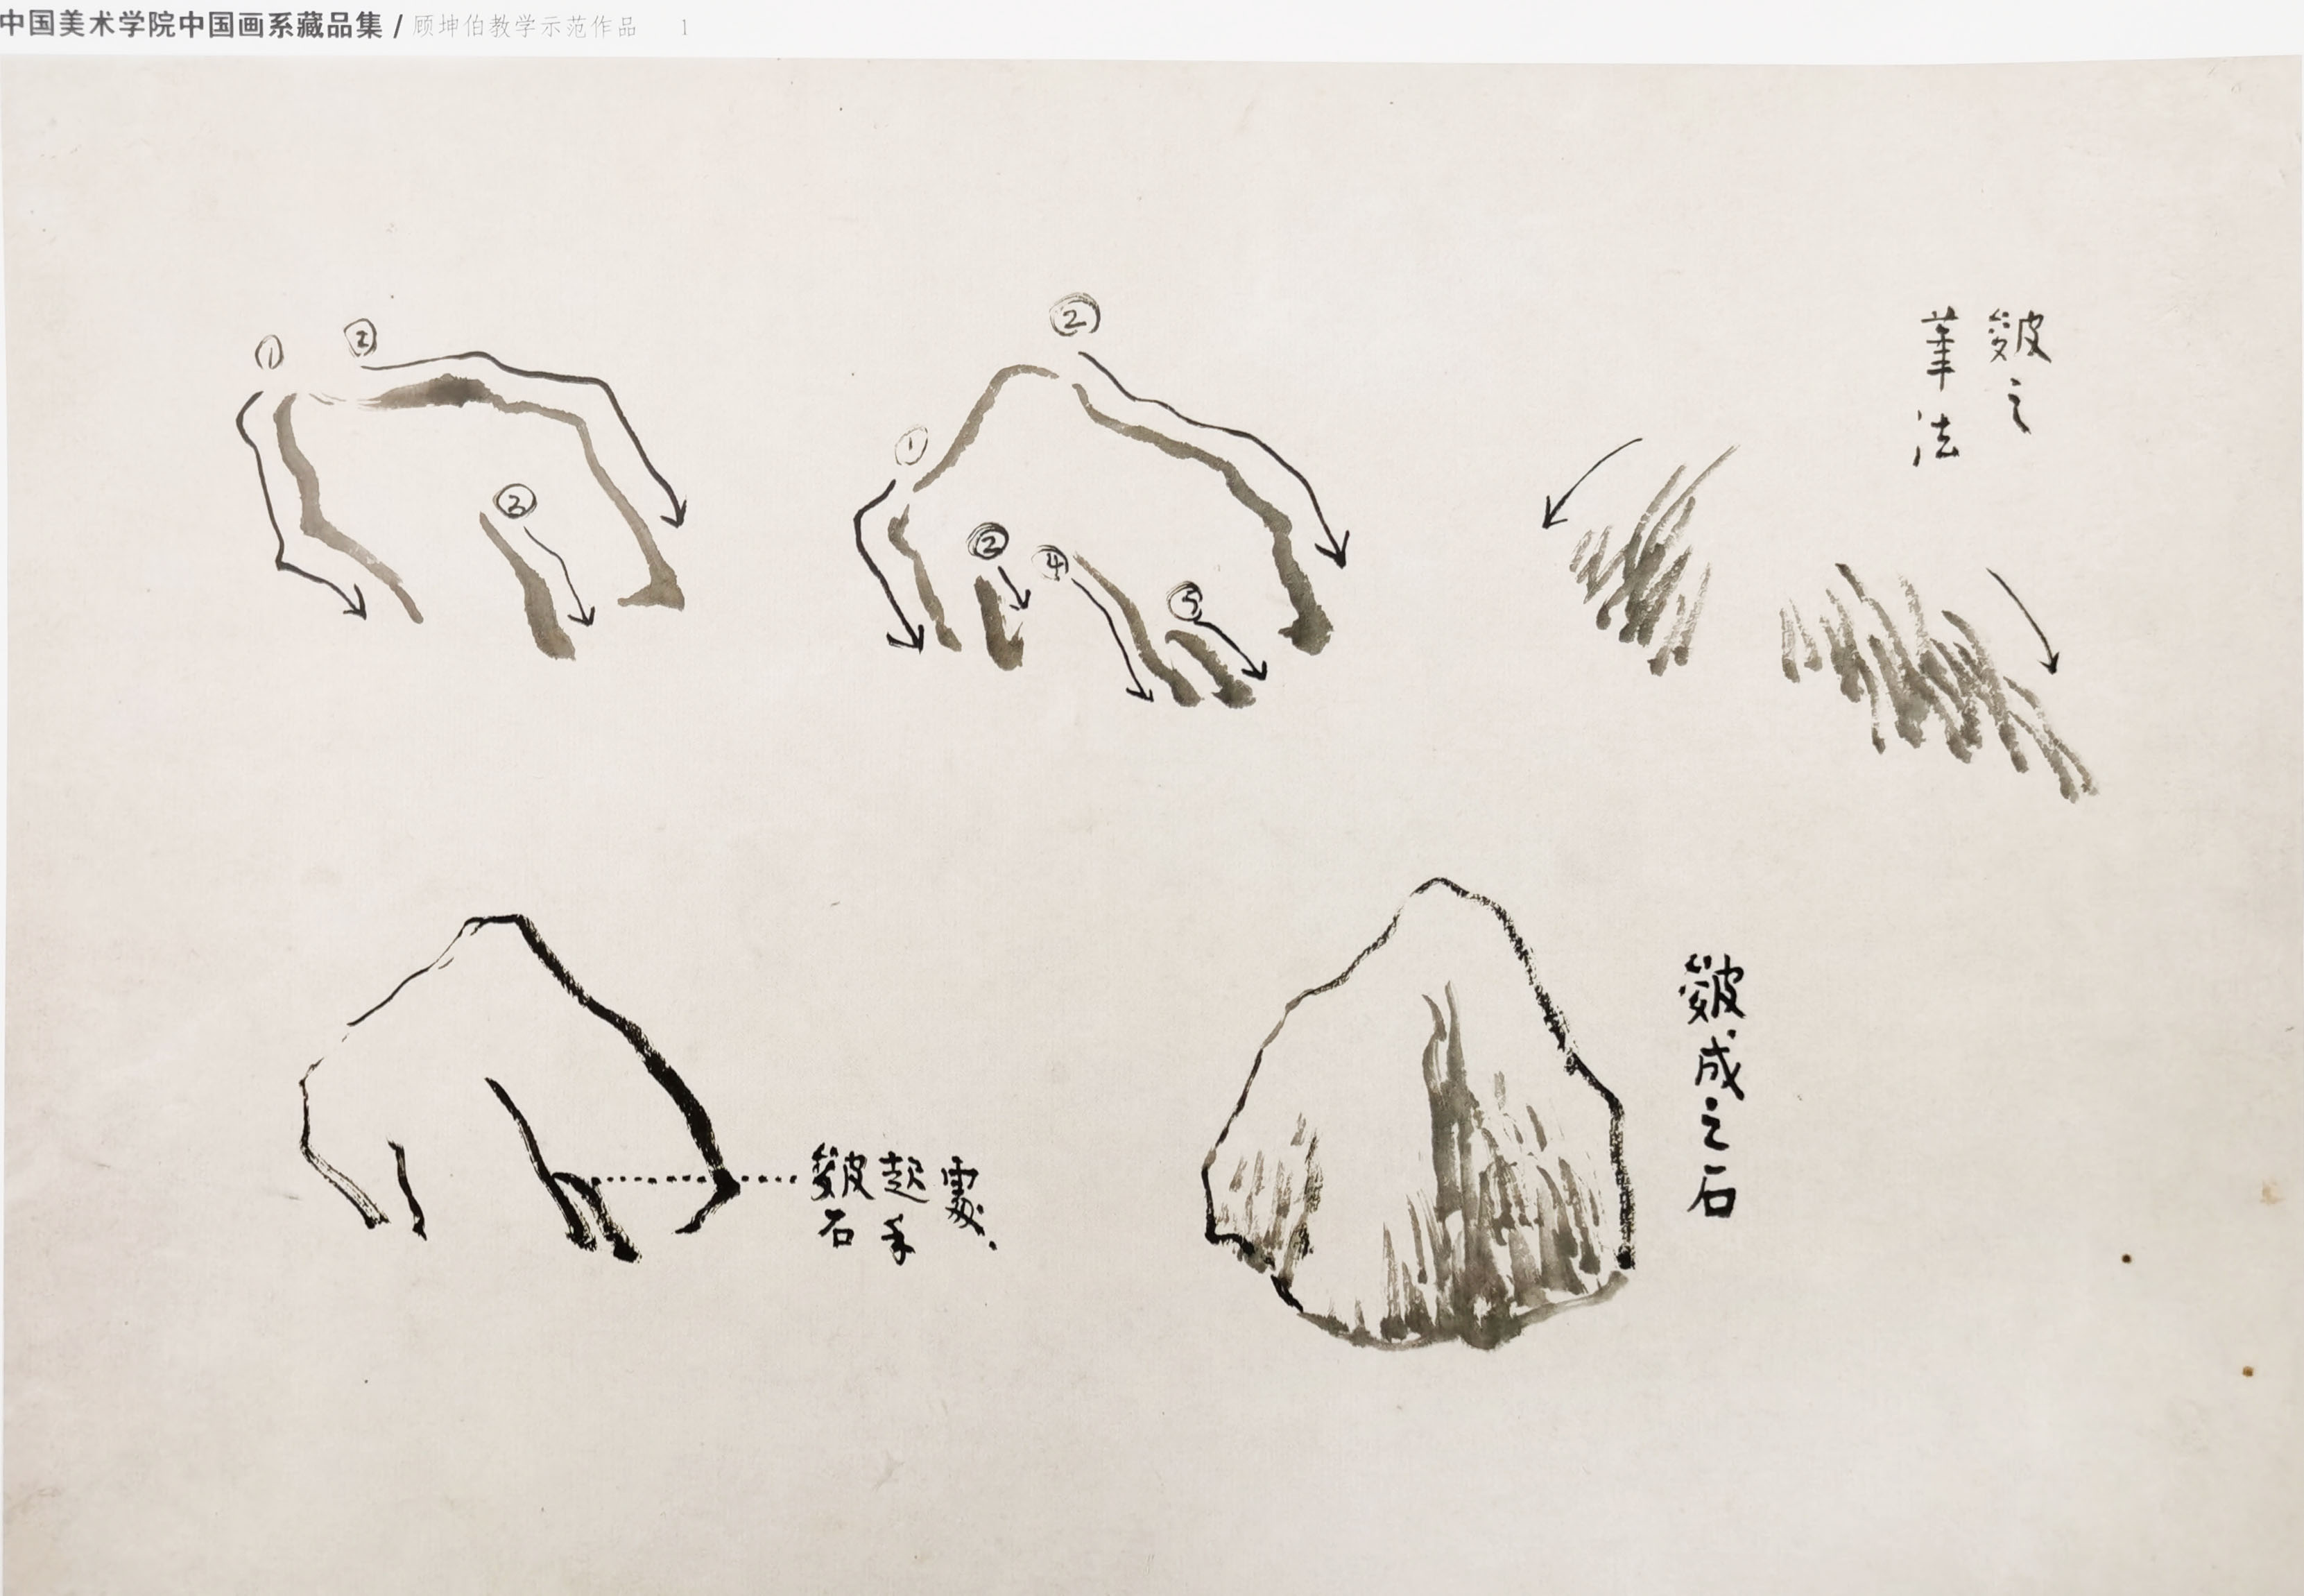 中国美术学院中国画系藏品集 / 顾坤伯教学示范作品 1
① ② ③
① ② ④ ⑤
皴之
筆法
皴石
起手
處
皴成之石